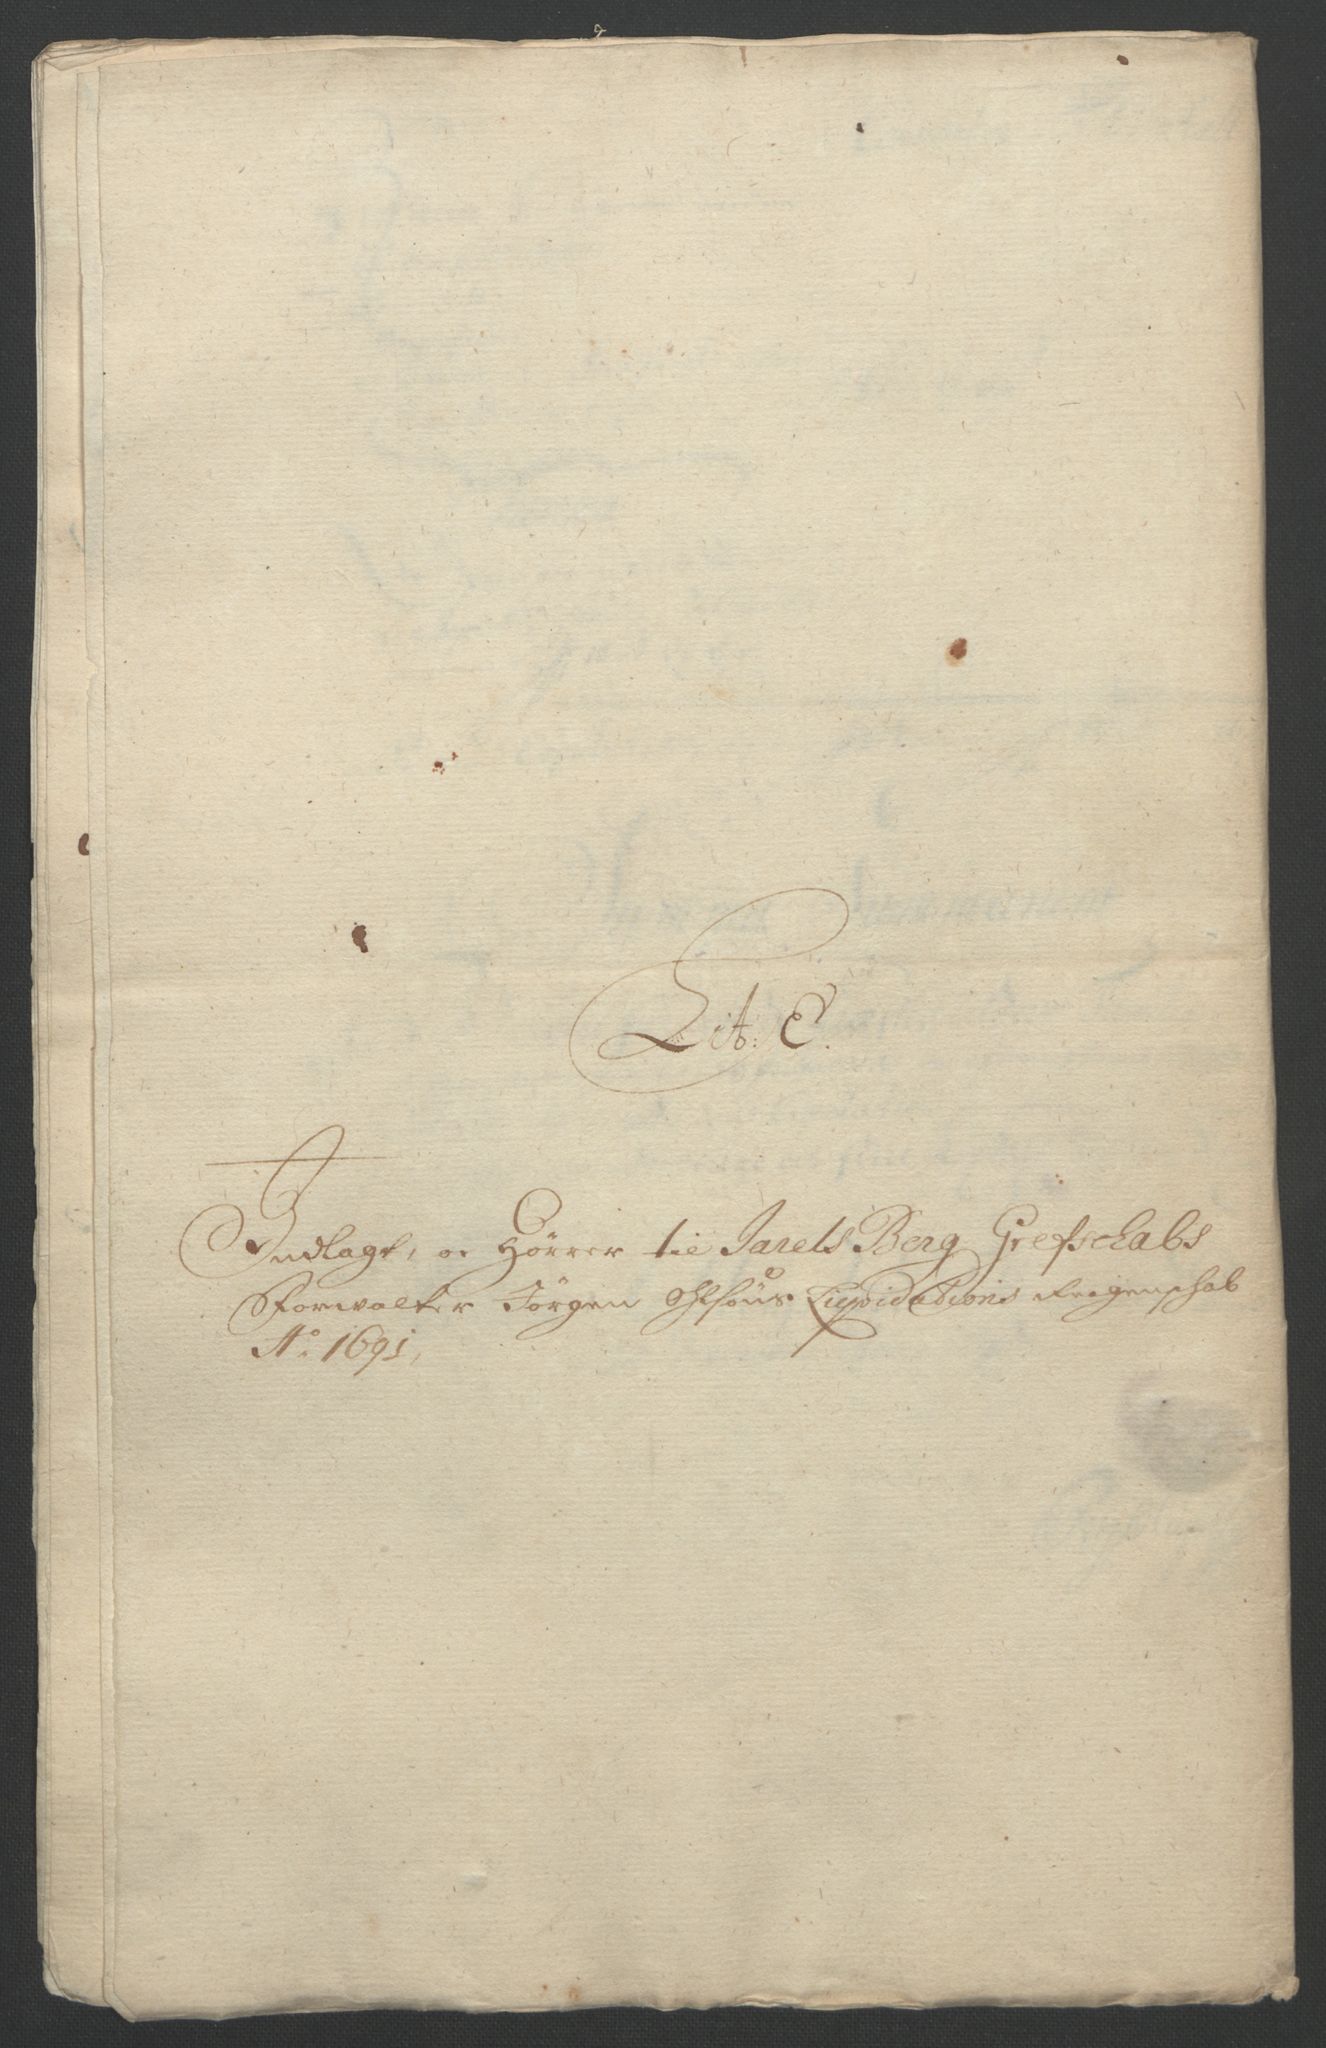 Lit: E.
Indlagt, oc Hörrer til Jarels Berg Grefschabs
Forwalter Jörgen Ollsöns Liqvidations Regenschab
Ao: 1691,